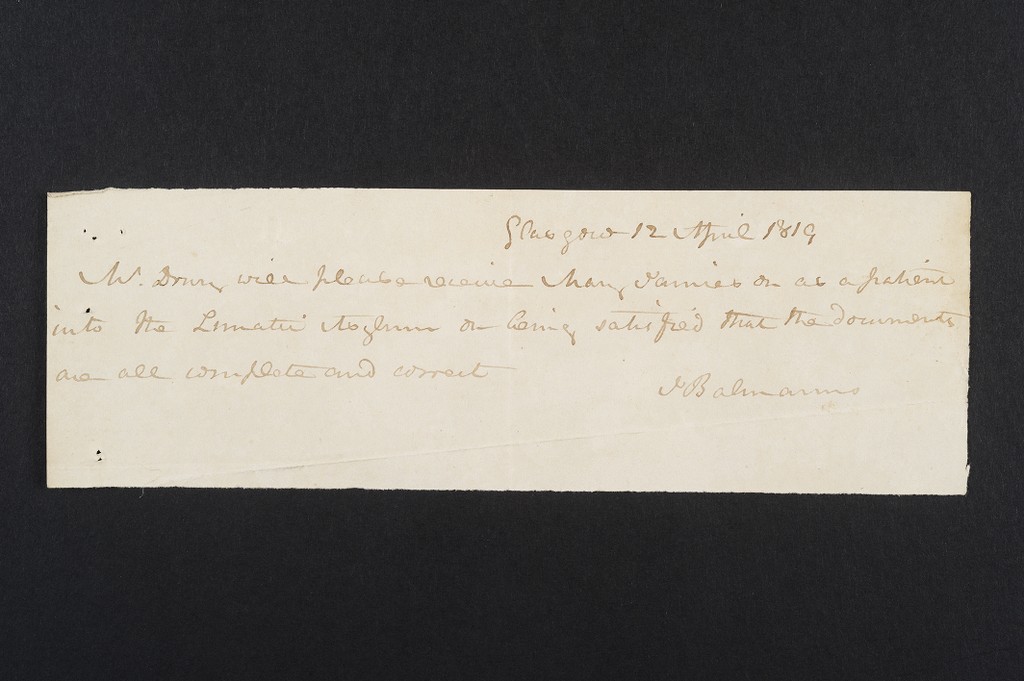 Glasgow 12 April 1819
Mr. Drury will please receive Mary Jamieson as a patient
into the Lunatic Asylum on being satisfied that the documents
are all complete and correct
J Balmanno